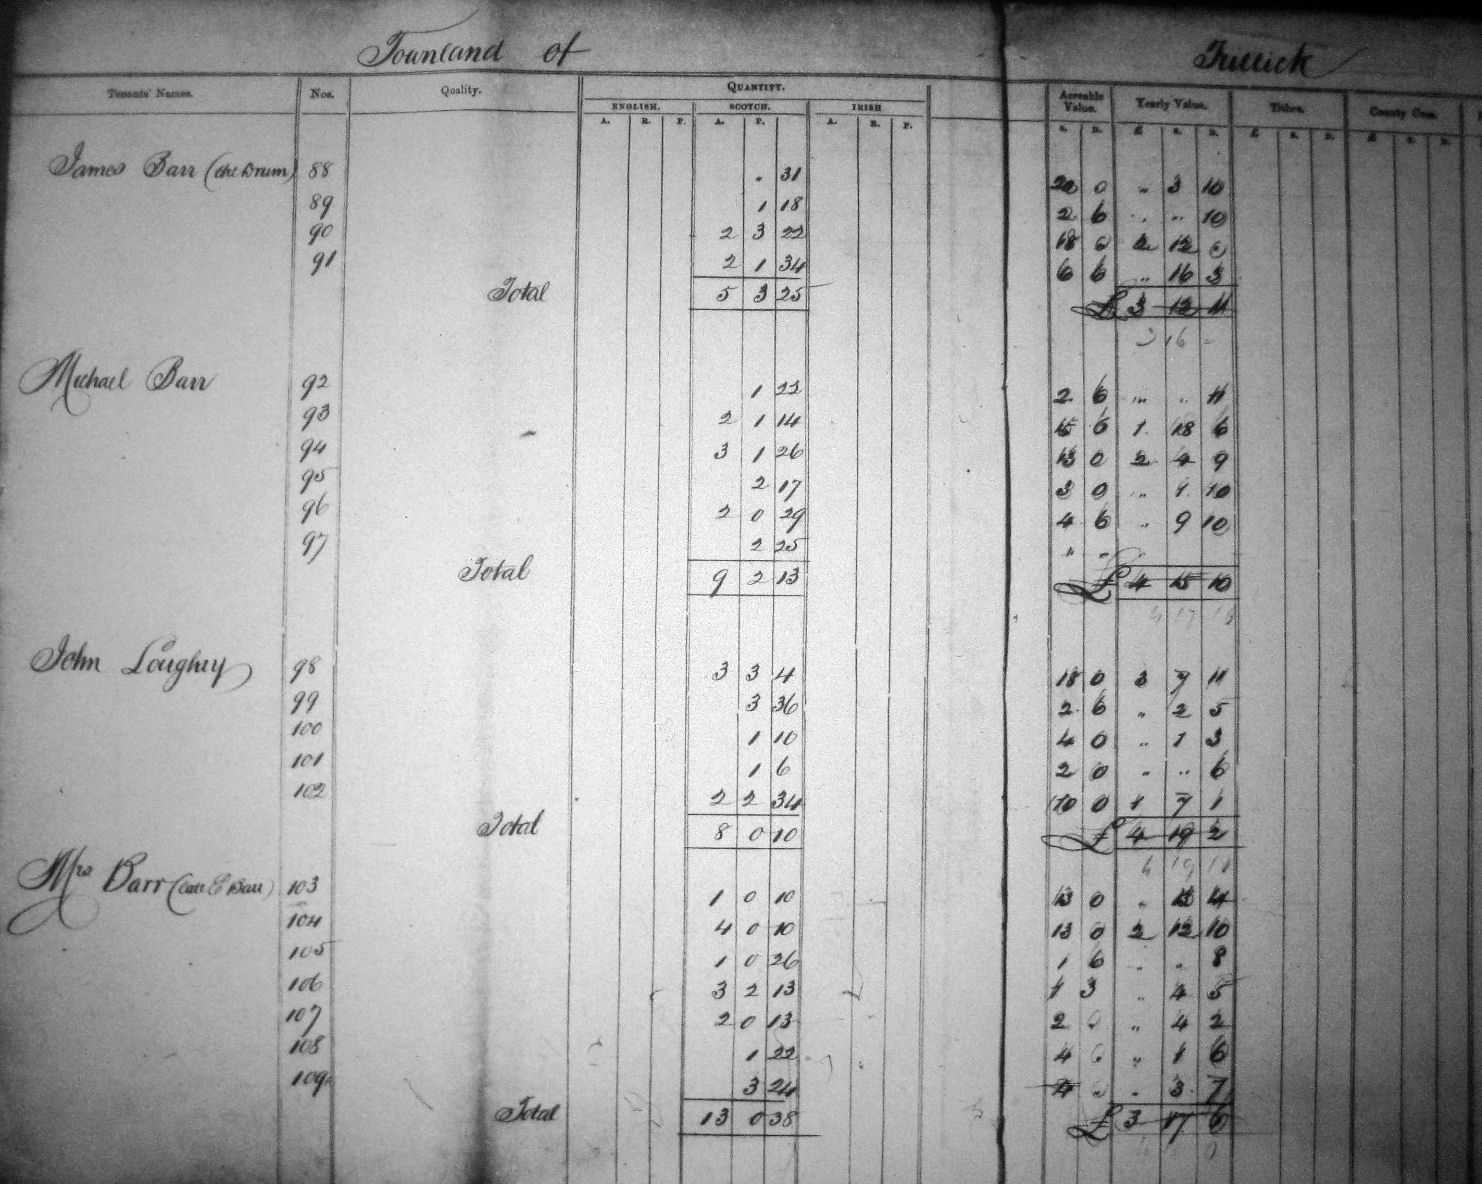 Townland of Trillick
Tenants' Names. Nos. Quality. QUANTITY. Acreable Value. Yearly Value. Tithes. County Cess.
ENGLISH. SCOTCH. IRISH
A. R. P. A. P. A. R. P. s. D. £ s. D. £ s. D. £ s. D.
James Barr (the Drum) 88 " 31 20 0 " 3 10
89 1 18 2 6 " " 10
90 2 3 22 18 0 2 12 0
91 2 1 34 6 6 " 16 3
Total 5 3 25 £ 3 12 11
3 16 -
Michael Barr 92 1 22 2 6 " " 11
93 2 1 14 15 6 1 18 6
94 3 1 26 13 0 2 4 9
95 2 17 3 0 " 1 10
96 2 0 29 4 6 " 9 10
97 2 25 " "
Total 9 2 13 £ 4 15 10
4 17
John Loughry 98 3 3 4 18 0 3 7 11
99 3 36 2 6 " 2 5
100 1 10 4 0 " 1 3
101 1 6 2 0 " " 6
102 2 2 34 10 0 1 7 1
Total 8 0 10 £ 4 19 2
4 19
Mrs Barr (late P Barr) 103 1 0 10 13 0 " 13 4
104 4 0 10 13 0 2 12 10
105 1 0 26 1 6 " " 8
106 3 2 13 1 3 " 4 5
107 2 0 13 2 0 " 4 2
108 1 22 4 0 " 1 6
109 3 24 4 0 " 3 7
Total 13 0 38 £ 3 17 6